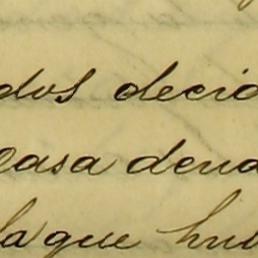 dos decid
casa dend
la que hub